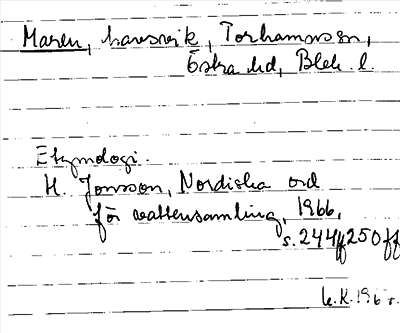 Maren, havsvik, Torhamns sn,
Östra hd, Blek. l.
Etymologi.
H. Jonsson, Nordiska ord
för vattensamling, 1966,
s. 244ff 250ff